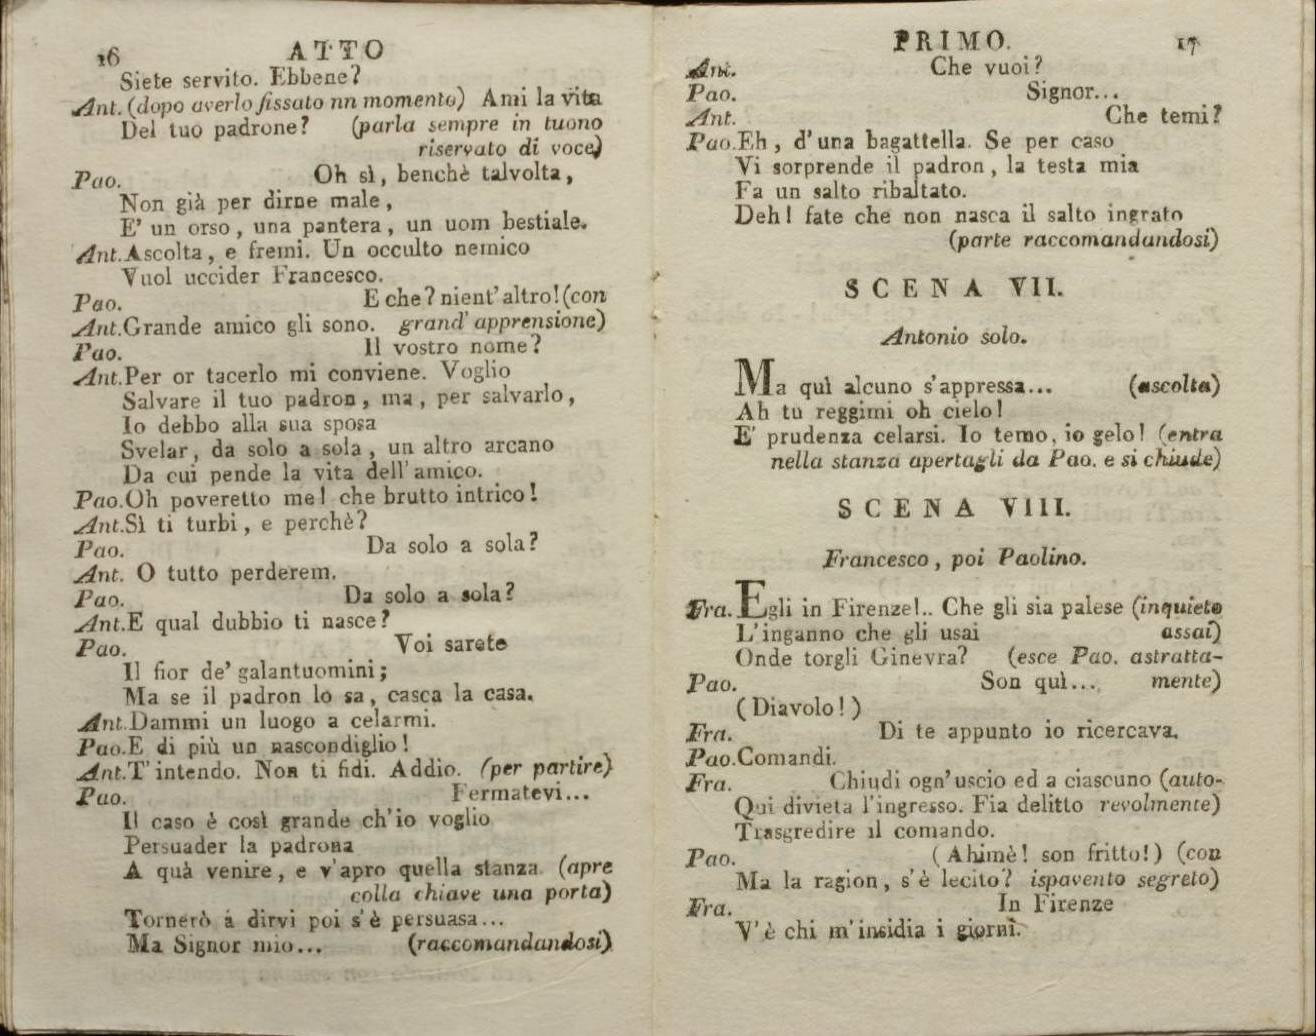 16 ATTO
Siete servito. Ebbene?
Ant. (dopo averlo fissato nn momento) Ami la vita
Del tuo padrone? (parla sempre in tuono
riservato di voce)
Pao. Oh sì, benchè talvolta,
Non già per dirne male,
E' un orso, una pantera, un uom bestiale.
Ant. Ascolta, e fremi. Un occulto nemico
Vuol uccider Francesco.
Pao. E che? nient'altro! (con
Ant. Grande amico gli sono. grand' apprensione)
Pao. Il vostro nome?
Ant. Per or tacerlo mi conviene. Voglio
Salvare il tuo padron, ma, per salvarlo,
Io debbo alla sua sposa
Svelar, da solo a sola, un altro arcano
Da cui pende la vita dell'amico.
Pao. Oh poveretto me! che brutto intrico!
Ant. Sì ti turbi, e perchè?
Pao. Da solo a sola?
Ant. O tutto perderem.
Pao. Da solo a sola?
Ant. E qual dubbio ti nasce?
Pao. Voi sarete
Il fior de' galantuomini;
Ma se il padron lo sa, casca la casa.
Ant. Dammi un luogo a celarmi.
Pao. E di più un nascondiglio!
Ant. T'intendo. Non ti fidi. Addio. (per partire)
Pao. Fermatevi...
Il caso è così grande ch'io voglio
Persuader la padrona
A quà venire, e v'apro quella stanza. (apre
colla chiave una porta)
Tornerò a dirvi poi s'è persuasa...
Ma Signor mio... (raccomandandosi)
PRIMO. 17
Ant. Che vuoi?
Pao. Signor...
Ant. Che temi?
Pao. Eh, d'una bagattella. Se per caso
Vi sorprende il padron, la testa mia
Fa un salto ribaltato.
Deh! fate che non nasca il salto ingrato
(parte raccomandandosi)
SCENA VII.
Antonio solo.
Ma quì alcuno s'appressa... (ascolta)
Ah tu reggimi oh cielo!
E' prudenza celarsi. Io temo, io gelo! (entra
nella stanza apertagli da Pao. e si chiude)
SCENA VIII.
Francesco, poi Paolino.
Fra. Egli in Firenze!.. Che gli sia palese (inquieto
L'inganno che gli usai assai)
Onde torgli Ginevra? (esce Pao. astratta-
Pao. Son quì... mente)
(Diavolo!)
Fra. Di te appunto io ricercava.
Pao. Comandi.
Fra. Chiudi ogn'uscio ed a ciascuno (auto-
Qui divieta l'ingresso. Fia delitto revolmente)
Trasgredire il comando.
Pao. (Ahimè! son fritto!) (con
Ma la ragion, s'è lecito? ispavento segreto)
Fra. In Firenze
V'è chi m'insidia i giorni.